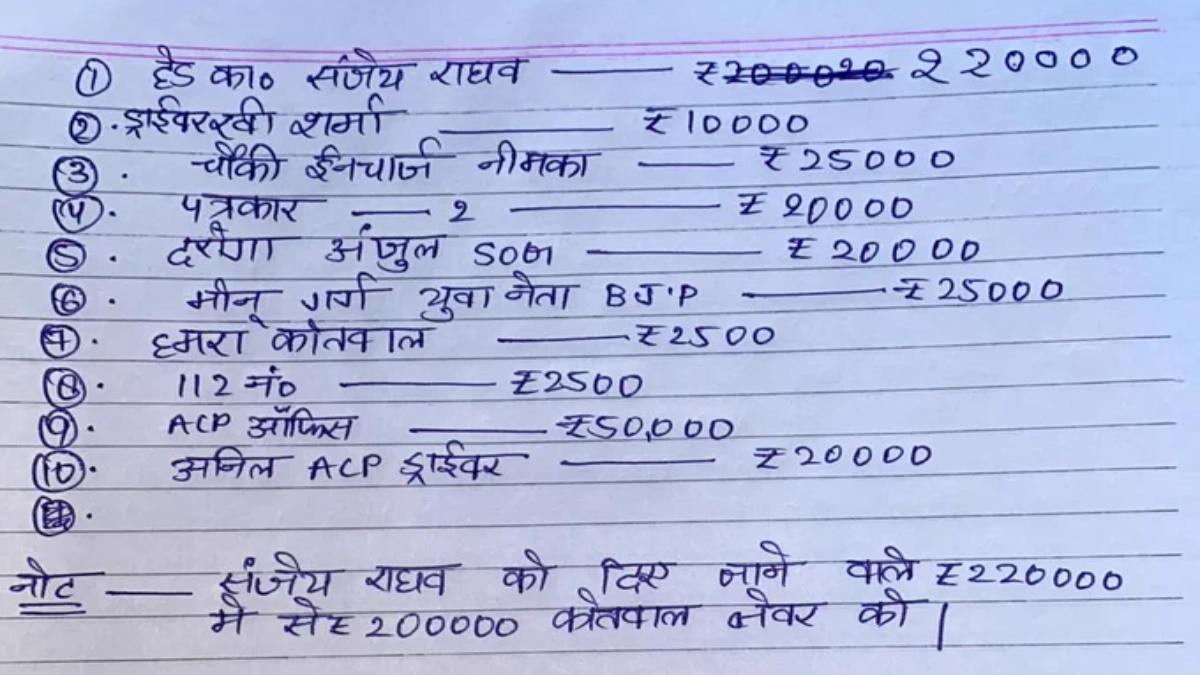 ① हेड का० संजेय राघव —— ₹200020 220000
②. ड्राईवर रवी शर्मा —— ₹10000
③. चौंकी ईनचार्ज नीमका —— ₹25000
④. पत्रकार —— 2 —— ₹20000
⑤. दरोगा अंजुल SOG —— ₹20000
⑥. मीनू गर्ग युवा नेता B J.P —— ₹25000
⑦. हमरा कोतवाल —— ₹2500
⑧. 112 नं० —— ₹2500
⑨. ACP ऑफिस —— ₹50,000
⑩. अनिल ACP ड्राईवर —— ₹20000
नोट —— संजेय राघव को दिए जाने वाले ₹220000
मे से ₹200000 कोतवाल जेवर को |